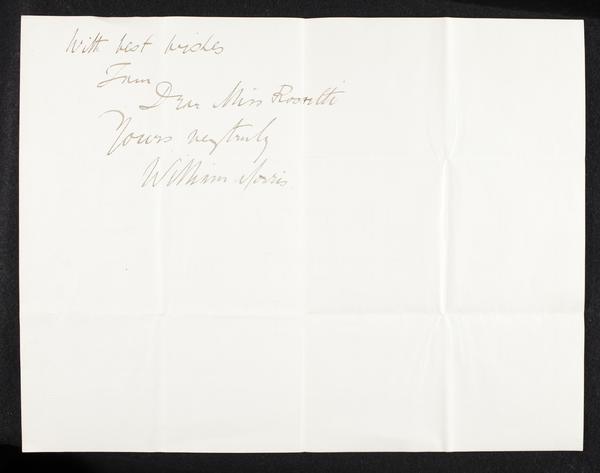 With best wishes
I am
Dear Miss Rossetti
Yours very truly
William Morris